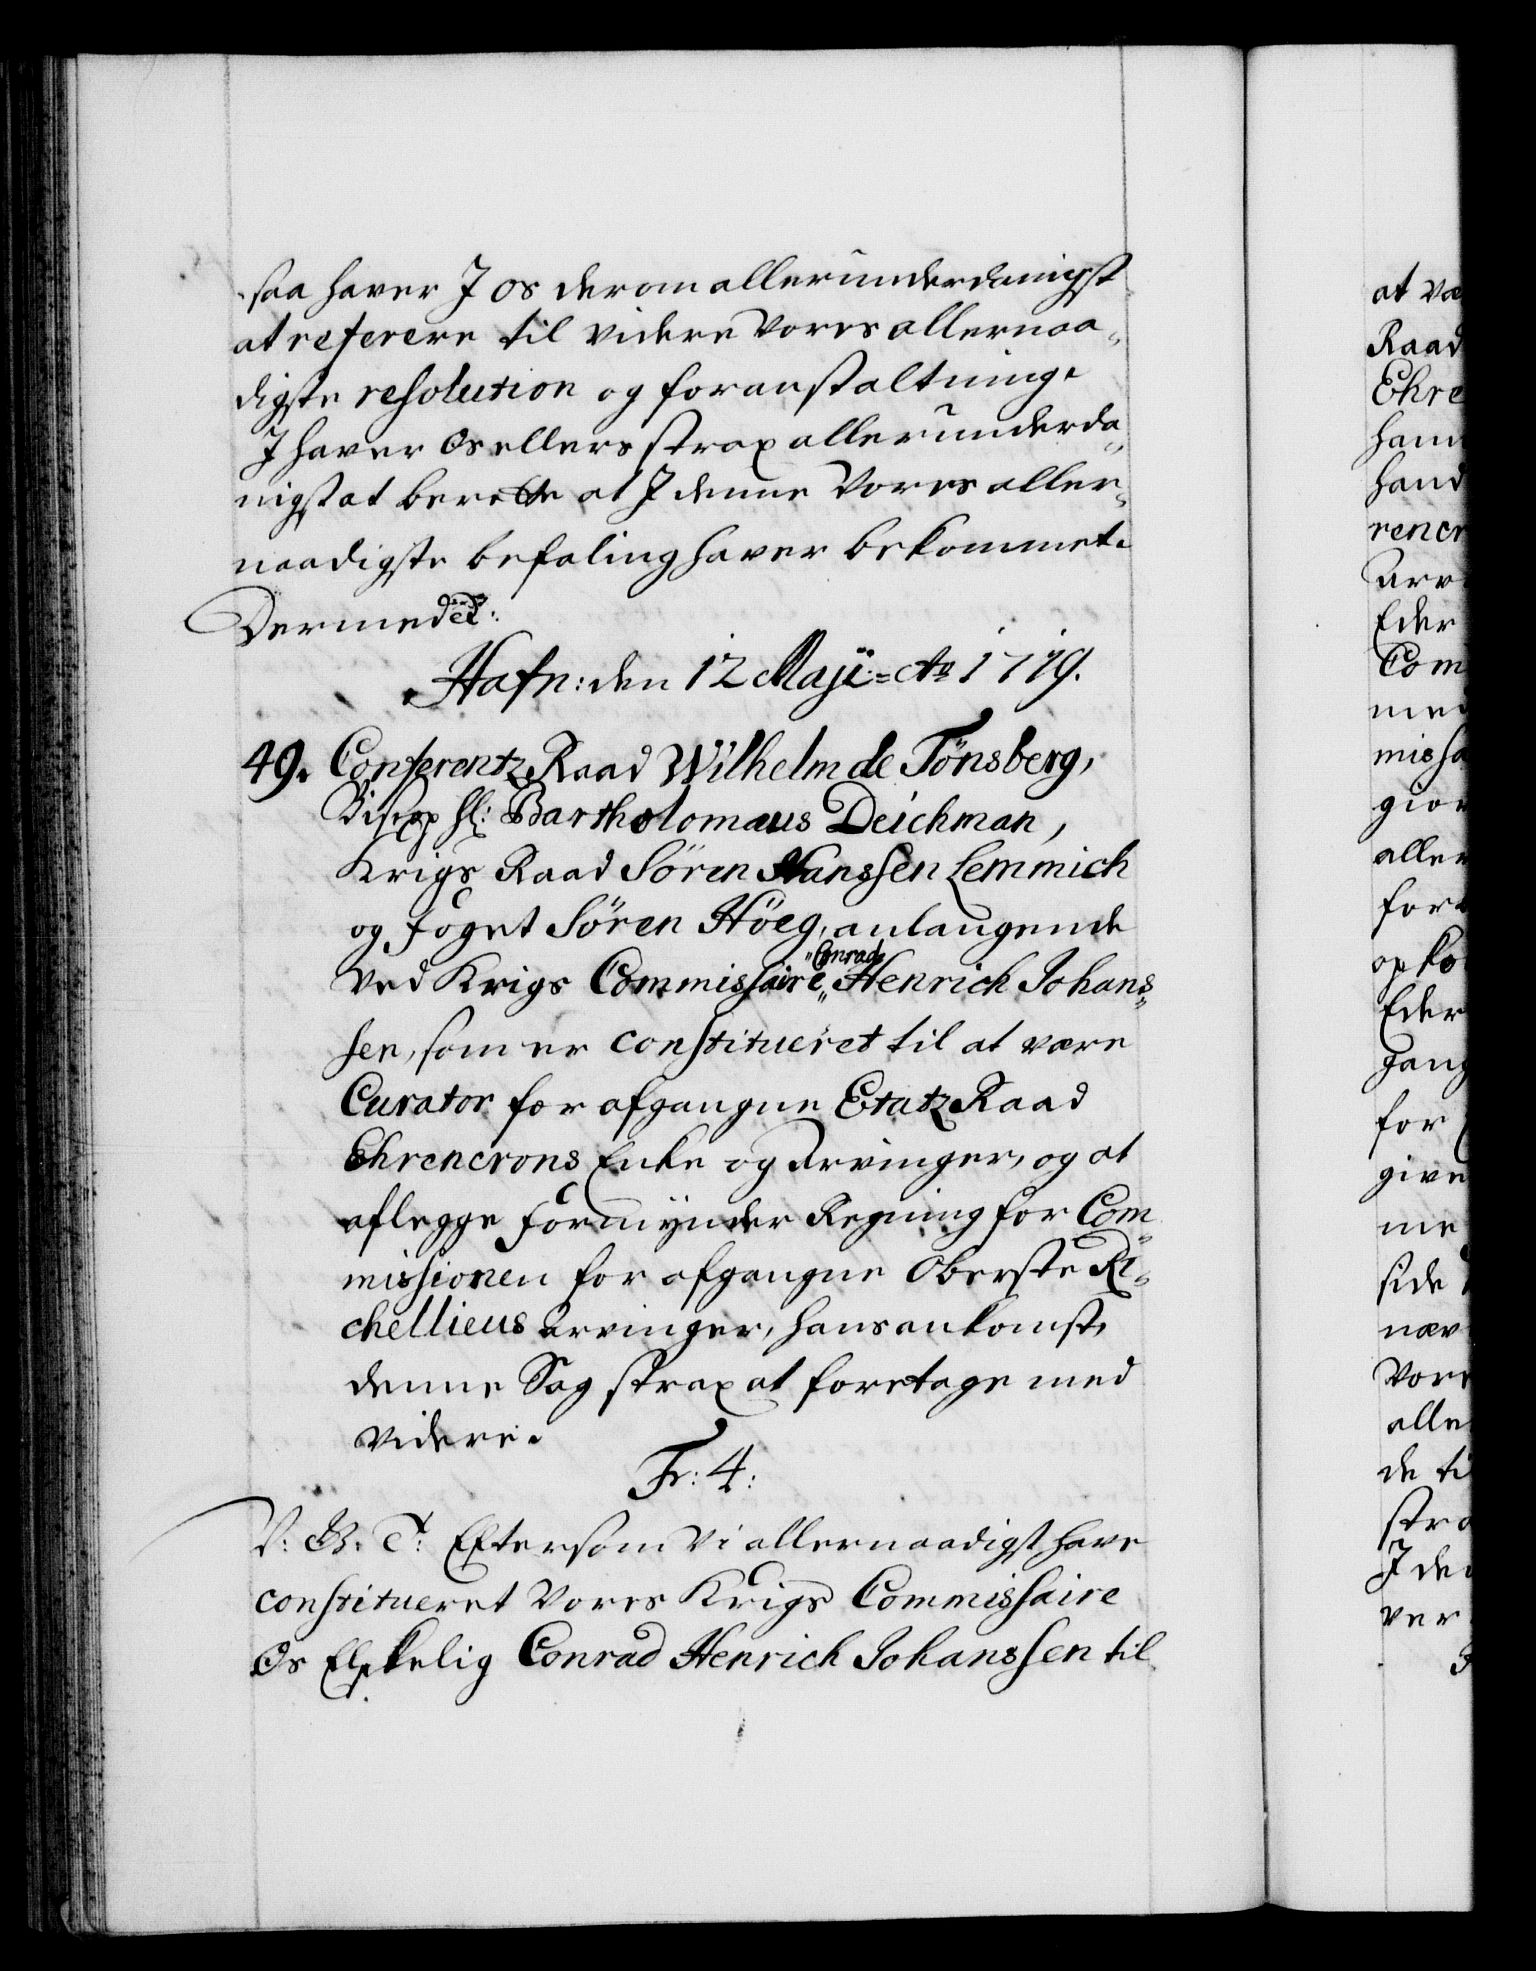 saa haver J os derom allerunderdanigst
at referere til videre Vores allernaa-
digste resolution og foranstaltning.
J haver Os ellers strax allerunderda-
nigst at berette at J denne Vores aller-
naadigste befaling haver bekommet.
Dermed etc:
Hafn: den 12 Maji: Ao 1719.
49. Conferentz Raad Wilhelm de Tönsberg,
Biscop Hl: Bartholomæus Deichman,
Krigs Raad Sören Hanssen Lemmich
og foget Sören Höeg, anlangende
Ved Krigs Commissaire "Conrad" Henrich Johans-
sen, som er constitueret til at være
Curator for afgangne Etatz Raad
Ehrencrons Enke og Arvinger, og at
aflegge formynder Regning for Com-
missionen for afgangne Oberste Ri-
chellieus Arvinger, hans ankomst,
denne Sag strax at foretage med
videre.
Fr: 4:
V: G. T: Eftersom Vi allernaadigst have
constitueret Vores Krigs Commissaire
Os Elskelig Conrad Henrich Johanssen til
at væ
Raad
Ehre
ham
hand
rencr
Arv
Eder
Com
med
missa
gior
aller
for
op ko
Eder
gang
for
give
me
side
næv
Vore
alle
de ti
stra
J de
ver